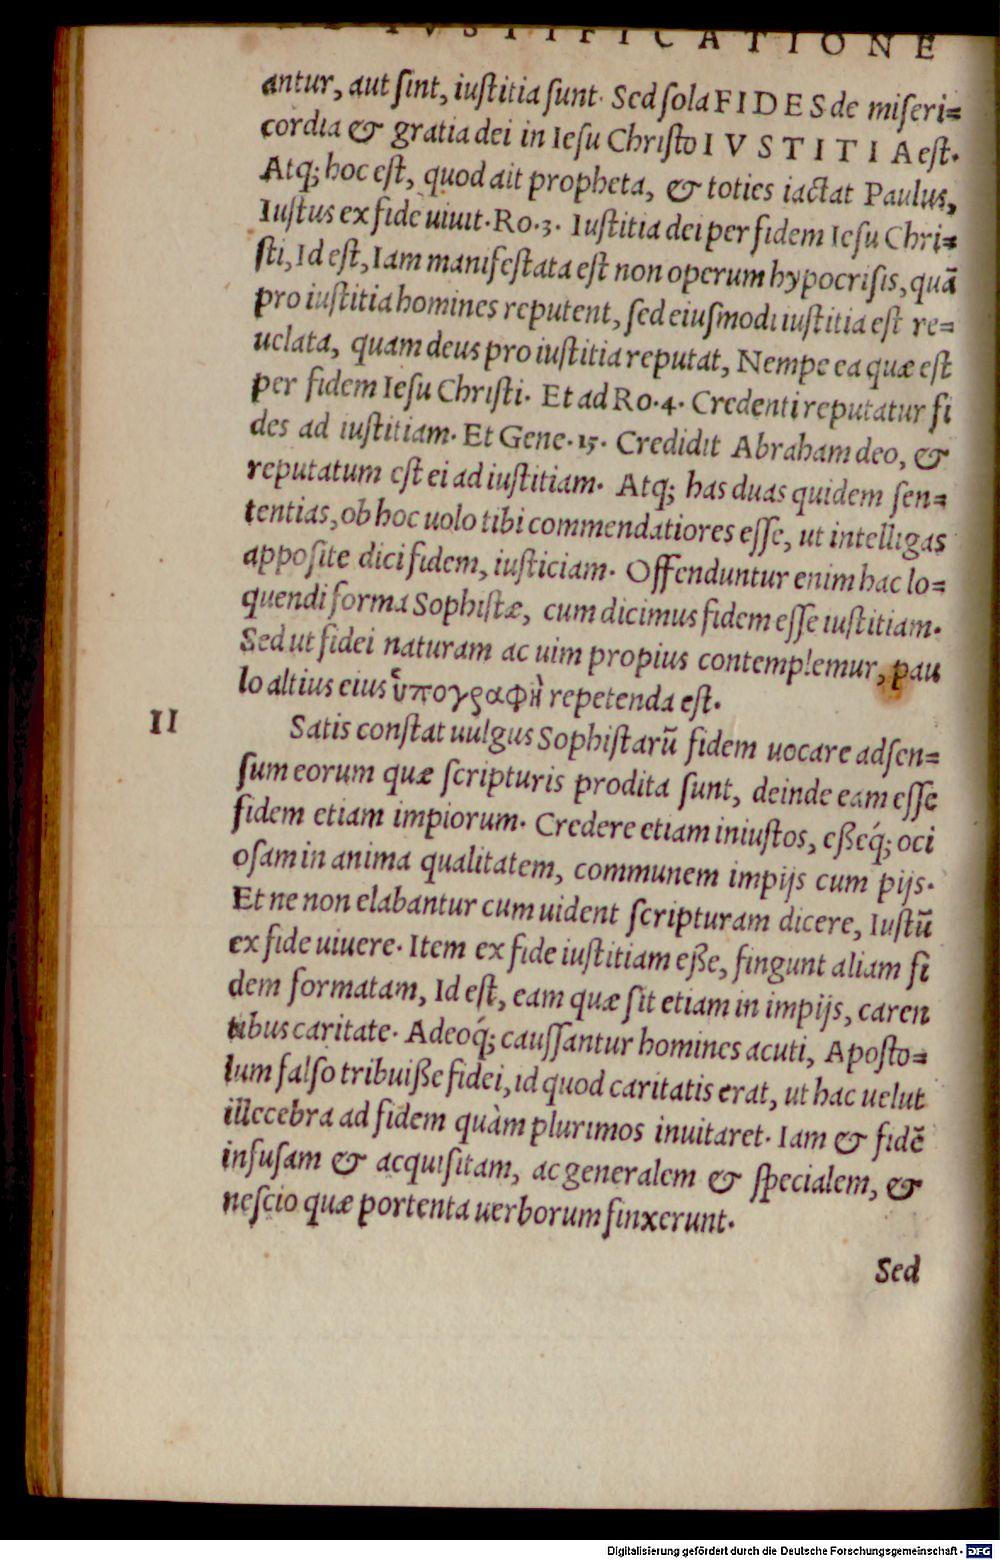 DE IVSTIFICATIONE
antur, aut ſint, iuſtitia ſunt. Sed ſola FIDES de miſeri=
cordia & gratia dei in Ieſu Chriſto IVSTITIA eſt.
Atq; hoc eſt, quod ait propheta, & toties iactat Paulus,
Iuſtus ex fide uiuit. Ro. 3. Iuſtitia dei per fidem Ieſu Chri=
ſti, Id eſt, Iam manifeſtata eſt non operum hypocriſis, quā
pro iuſtitia homines reputent, ſed eiuſmodi iuſtitia eſt re=
uelata, quam deus pro iuſtitia reputat, Nempe ea quæ eſt
per fidem Ieſu Chriſti. Et ad Ro. 4. Credenti reputatur fi
des ad iuſtitiam. Et Gene. 15. Credidit Abraham deo, &
reputatum eſt ei ad iuſtitiam. Atq; has duas quidem ſen=
tentias, ob hoc uolo tibi commendatiores eſſe, ut intelligas
appoſite dici fidem, iuſticiam. Offenduntur enim hac lo=
quendi forma Sophiſtæ, cum dicimus fidem eſſe iuſtitiam.
Sed ut fidei naturam ac uim propius contemplemur, pau
lo altius eius ὑπογραφὴ repetenda eſt.
II
Satis conſtat uulgus Sophiſtarū fidem uocare adſen=
ſum eorum quæ ſcripturis prodita ſunt, deinde eam eſſe
fidem etiam impiorum. Credere etiam iniuſtos, eßeq́; oci
oſam in anima qualitatem, communem impijs cum pijs.
Et ne non elabantur cum uident ſcripturam dicere, Iuſtū
ex fide uiuere. Item ex fide iuſtitiam eße, fingunt aliam fi
dem formatam, Id eſt, eam quæ ſit etiam in impijs, caren
tibus caritate. Adeoq́; cauſſantur homines acuti, Apoſto=
lum falſo tribuiße fidei, id quod caritatis erat, ut hac uelut
illecebra ad fidem quàm plurimos inuitaret. Iam & fidē
infuſam & acquiſitam, ac generalem & ſpecialem, &
neſcio quæ portenta uerborum finxerunt.
Sed
Digitalisierung gefördert durch die Deutsche Forschungsgemeinschaft - DFG